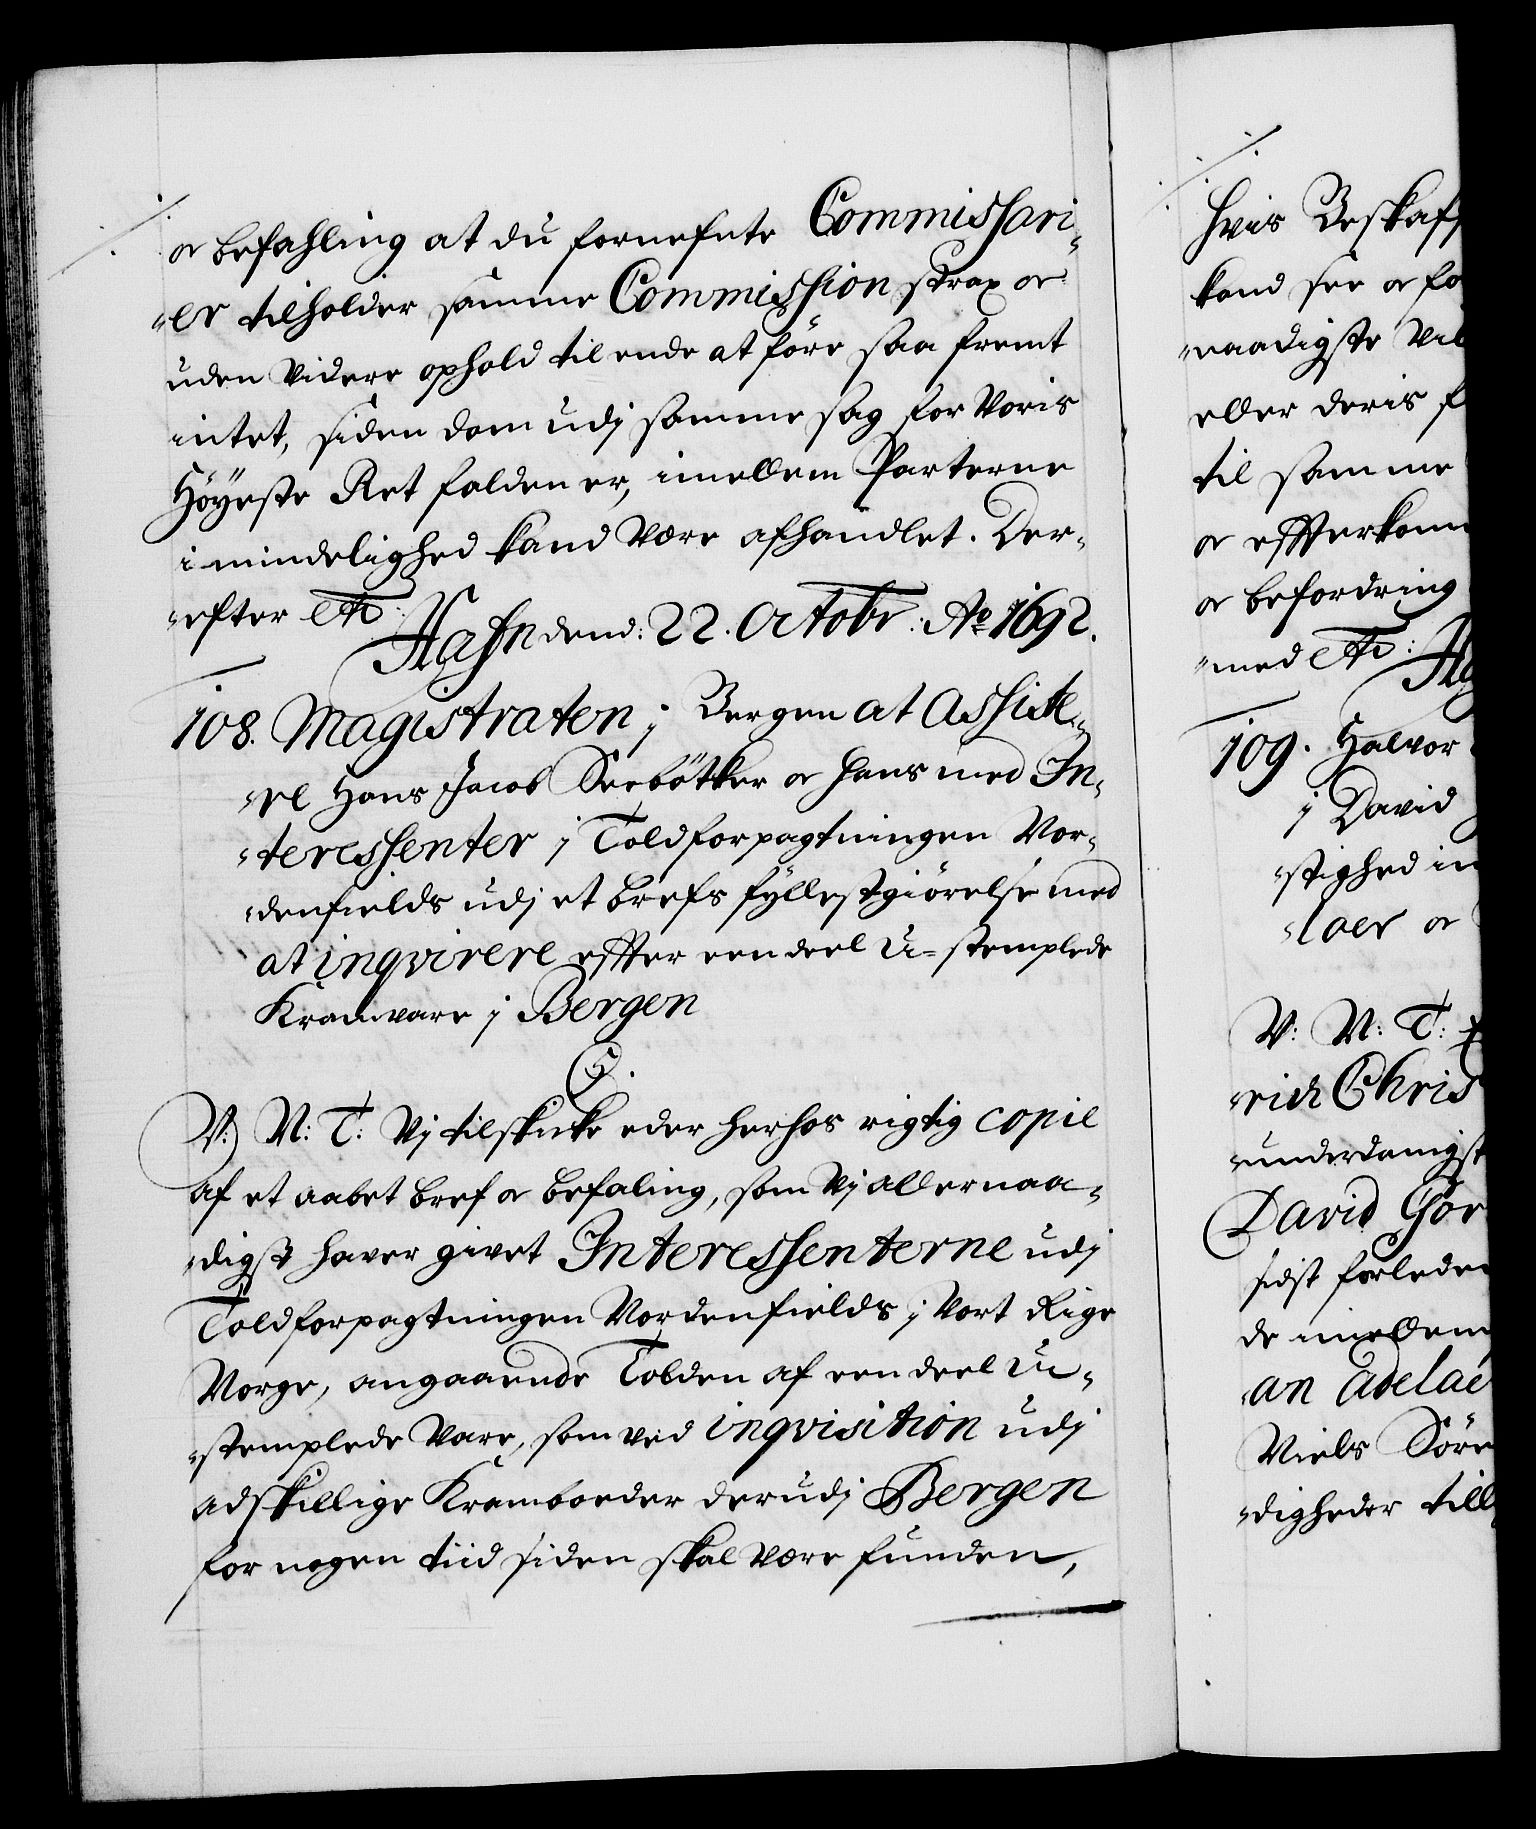 oc befahling at du fornefnte Commissari-
er tilholder samme Commission strax oc
uden videre ophold til ende at føre saa fremt
intet, siden dom udj samme sag for Voris
Höyeste Ret falden er, imellem Parterne
i mindelighed kand være afhandlet. Der-
efter etc:
Hafn dend: 22. Octobr: Ao 1692.
108. Magistraten j Bergen at assiste-
re Hans Jacob Seebötker oc hans med In-
teressenter j Toldforpagtningen Nor-
denfields udj et brefs fyllestgiörelse med
at inqvirere effter een deel u-stemplede
Kramvare j Bergen
C5.
V: N: T: Vj tilskicke eder herhos rigtig copie
af et aabet bref oc befaling, som Vj allernaa-
digst haver givet Interessenterne udj
Toldforpagtningen Nordenfields j Vort Rige
Norge, angaaende Tolden af een deel u-
stemplede Vare, som ved inqvisition udj
adskillige Kramboeder derudj Bergen
for nogen tiid siden skal være funden,
hvis Beskaff
kand see oc fo
naadigste Vil
eller deris f
til samme
oc effterkom
oc befordring
med etc: Ha
109. Halvor
j David
stighed in
loer oc
V: N: T:
rich Chris
underdanigst
David Gor
sidst forleden
de imellem
an Adelae
Niels Söre
digheder till